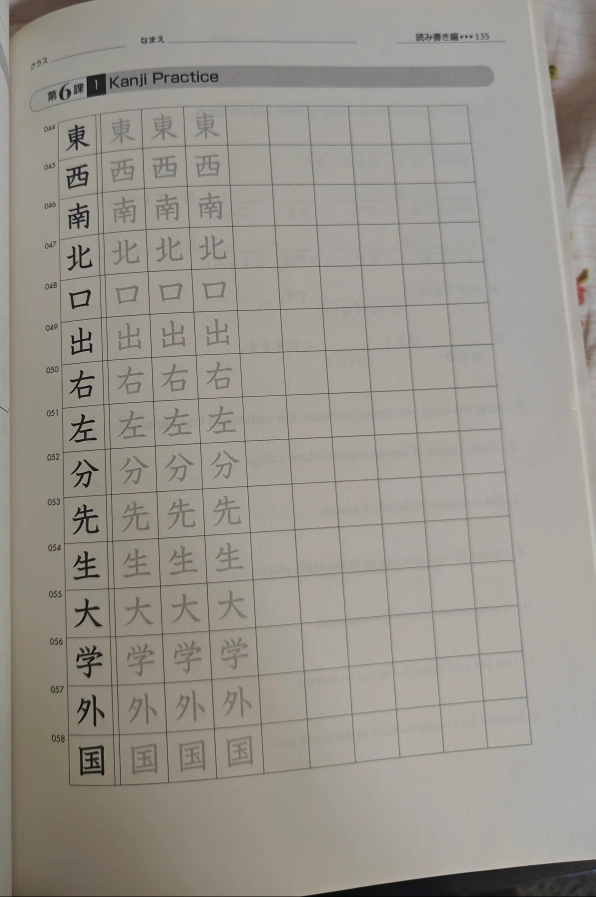 クラス なまえ 読み書き編▸▸▸135
第6課 1 Kanji Practice
044 東 東 東 東
045 西 西 西 西
046 南 南 南 南
047 北 北 北 北
048 口 口 口 口
049 出 出 出 出
050 右 右 右 右
051 左 左 左 左
052 分 分 分 分
053 先 先 先 先
054 生 生 生 生
055 大 大 大 大
056 学 学 学 学
057 外 外 外 外
058 国 国 国 国